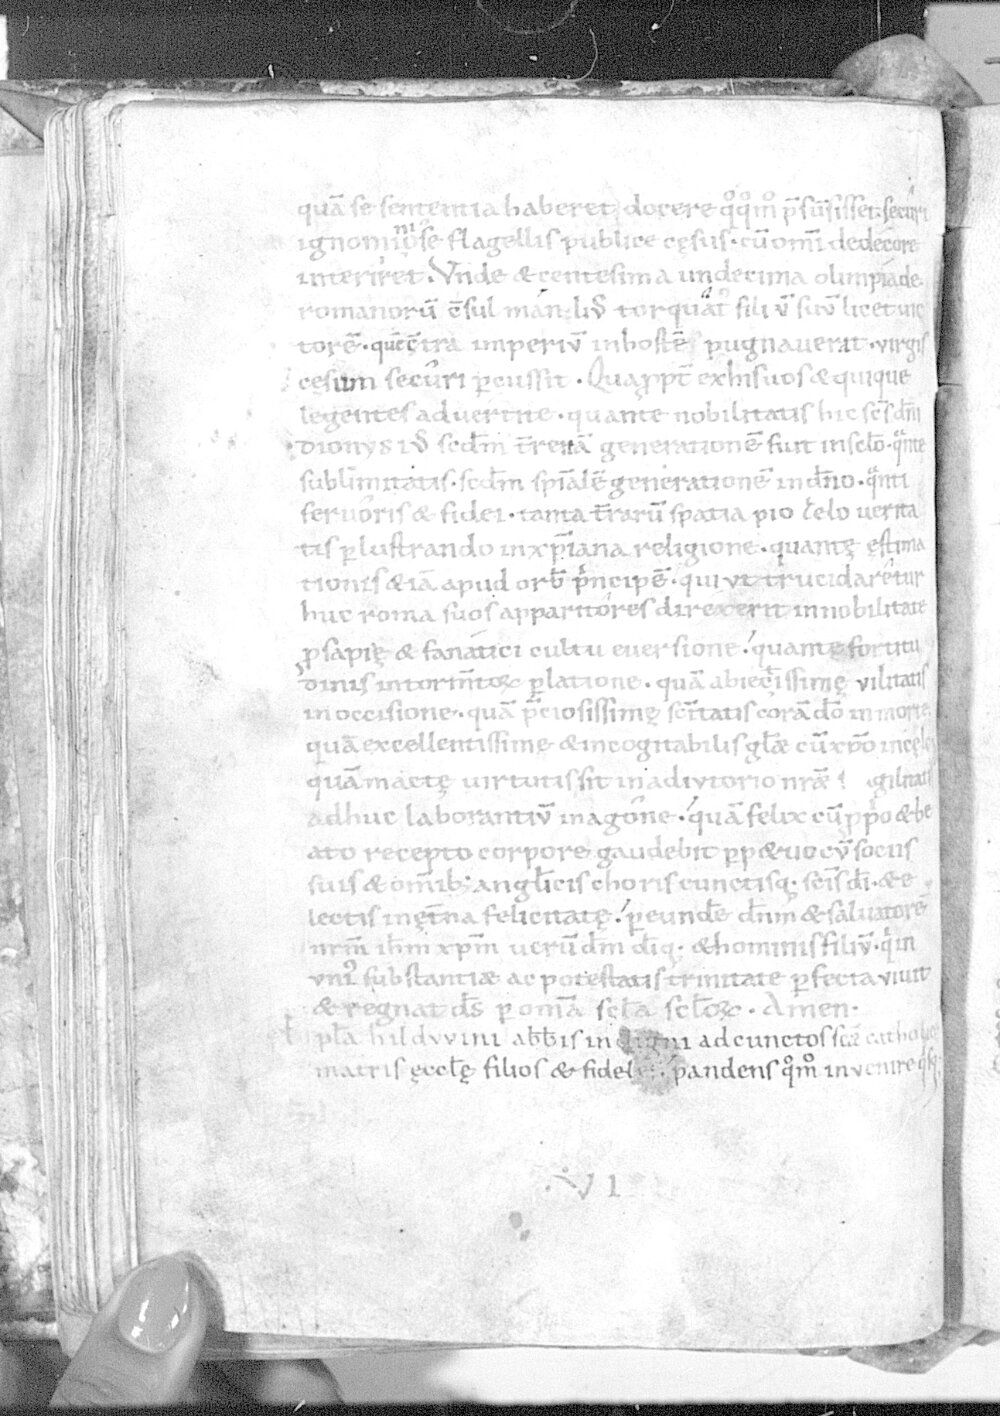 quā se sententia haberet docere qͦqͦmͦ p̄suisisset. secūri
ignominiose flagellis publice cęsus. cū om̄i dedecore
interiret. Vnde & centesima undecima olimpiade.
romanorū c̄sul manliꝰ torquatꝰ filiū suū licet uic
torē. quē c̄tra imperiū in hostē pugnauerat. virgis
cęsum securi pcussit. Quapp̄t ex his uos & quique
legentes aduertite. quante nobilitatis hic sc̄s dn̄i
dionysiꝰ scdm̄ t̄renā generationē fuit in sclō. qͣnte
sublimitatis. scdm̄ spi̅alē generationē in dn̄o. qͣnti
feruoris & fidei. tanta t̄rarū spatia pio zelo uerita
tis plustrando in xp̄iana religione. quantę ęstima
tionis & iā apud orb̄ pͥncipē. qui ut trucidaretur
huc roma suos apparitores direxerit in nobilitate
psapię & fanatici cultu euersione? quantę fortitu
dinis in torm̄toꝝ platione. quā abiectissimę vilitatis
in occisione. quā p̄ciosissimę sc̄itatis corā dō in morte
quā excellentissimę & incogitabilis glæ cū xp̄o in cęlis
quā mactę virtutis sit in adiutorio nræ fragilitatis
adhuc laborantiū in agone. quā felix cū pp̄o & be
ato recepto corpore gaudebit pp&uo cū sociis
suis & om̄ibꝫ angl̄icis choris cunctisq. sc̄is dī. & e
lectis in ęt̄na felicitatę? p eundē dn̄m & saluatorē
nr̄m ih̄m xp̄m uerū dm̄ dīq. & hominis filiū. qͥ in
unīꝰ substantiæ ac potestatis trinitate pfecta uiuit
& regnat ds̄ p omīa scl̄a scl̄oꝝ. Amen.
Epl̄a hilduuini abb̄is indigni ad cunctos sc̄æ catholicę
matris ęccl̄ę filios & fideles. pandens qͦmͦ inuenire
.VI